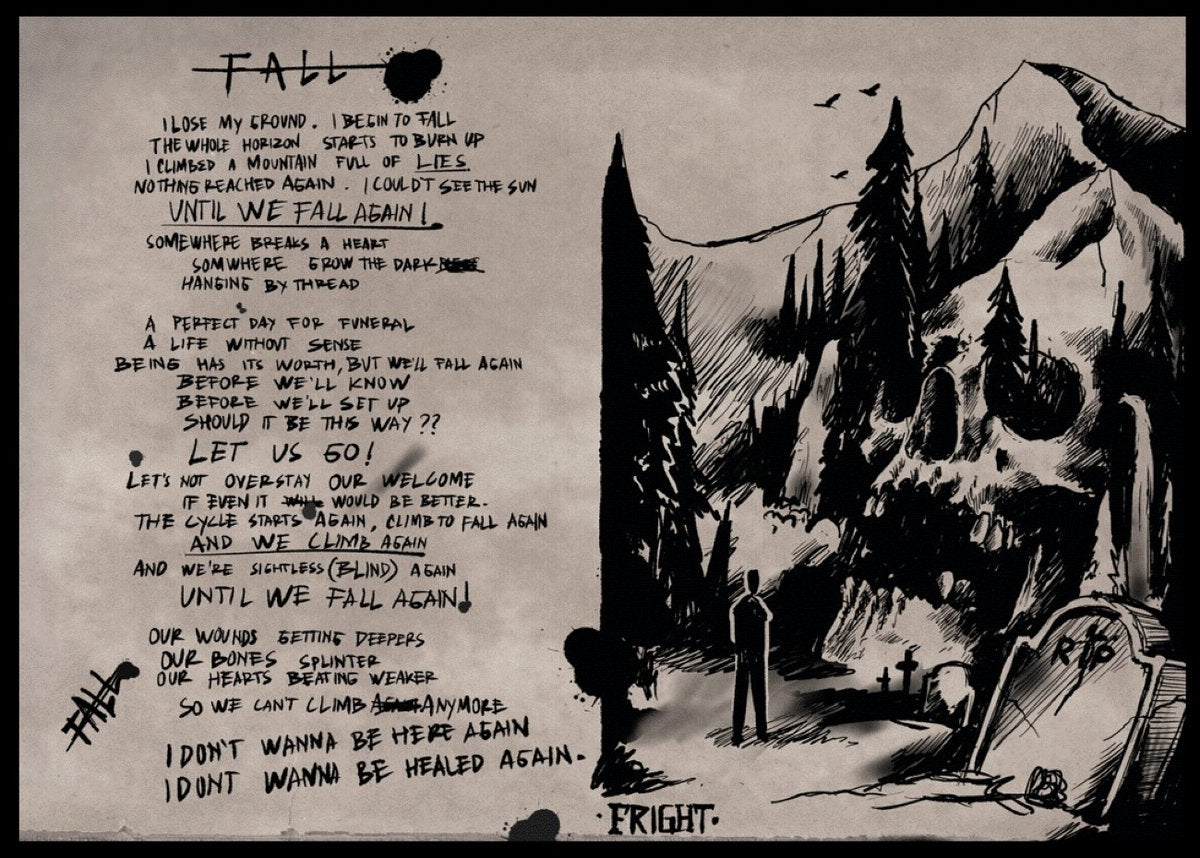 FALL
I LOSE MY GROUND. I BEGIN TO FALL
THE WHOLE HORIZON STARTS TO BURN UP
I CLIMBED A MOUNTAIN FULL OF LIES.
NOTHING REACHED AGAIN. I COULD'T SEE THE SUN
UNTIL WE FALL AGAIN!
SOMEWHERE BREAKS A HEART
SOMWHERE GROW THE DARK
HANGING BY THREAD
A PERFECT DAY FOR FUNERAL
A LIFE WITHOUT SENSE
BEING HAS ITS WORTH, BUT WE'LL FALL AGAIN
BEFORE WE'LL KNOW
BEFORE WE'LL SET UP
SHOULD IT BE THIS WAY??
LET US GO!
LET'S NOT OVERSTAY OUR WELCOME
IF EVEN IT WILL WOULD BE BETTER.
THE CYCLE STARTS AGAIN, CLIMB TO FALL AGAIN
AND WE CLIMB AGAIN
AND WE'RE SIGHTLESS (BLIND) AGAIN
UNTIL WE FALL AGAIN!
OUR WOUNDS GETTING DEEPERS
OUR BONES SPLINTER
OUR HEARTS BEATING WEAKER
SO WE CAN'T CLIMB AGAIN ANYMORE
I DON'T WANNA BE HERE AGAIN
I DONT WANNA BE HEALED AGAIN.
FALL
RIP
·FRIGHT·